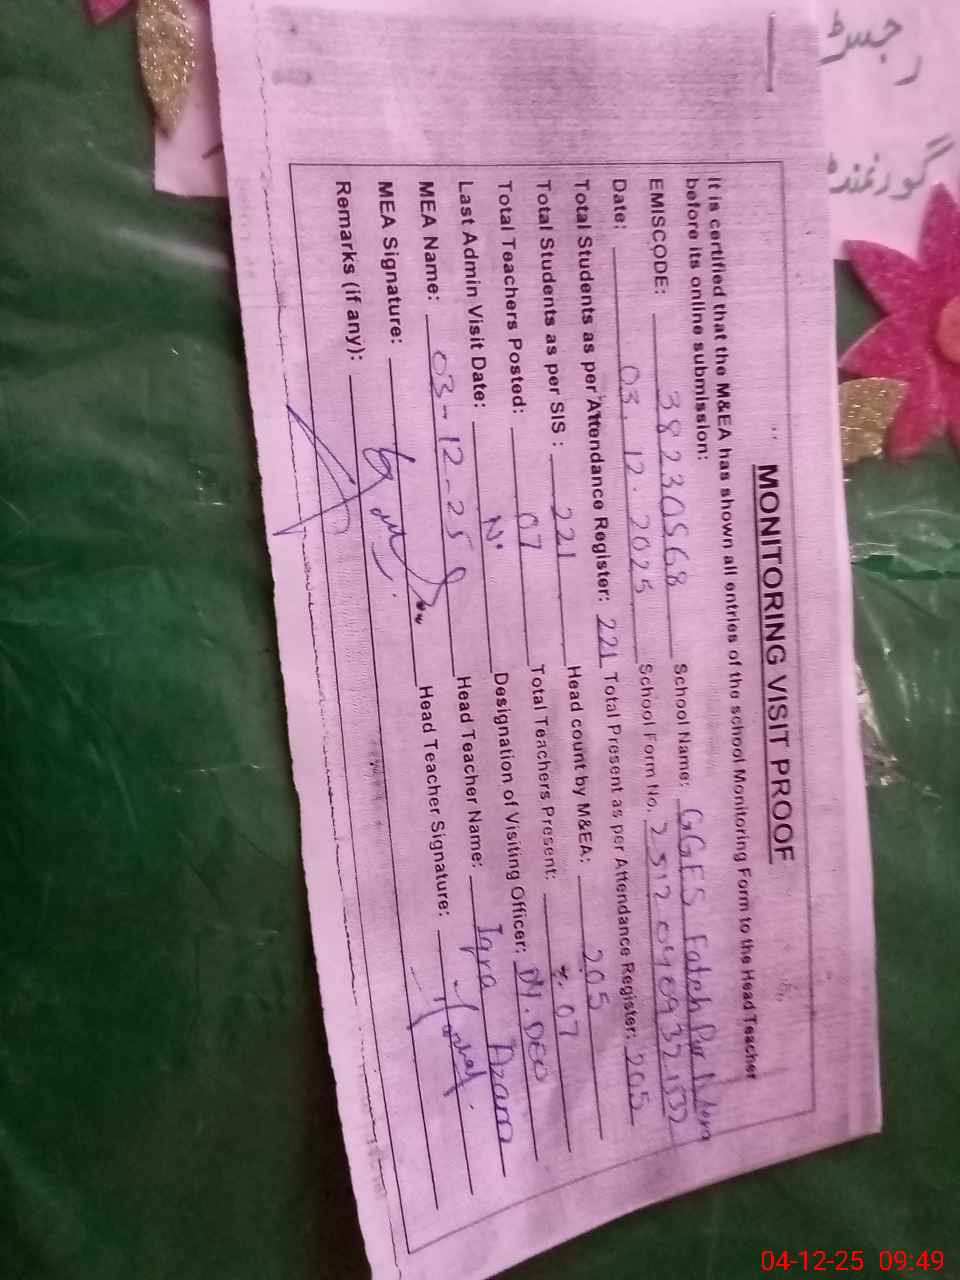 رجسٹر
گورنمنٹ
MONITORING VISIT PROOF
It is certified that the M&EA has shown all entries of the school Monitoring Form to the Head Teacher
before its online submission:
EMISCODE: 38230568 School Name: GGES Fateh Pur
Date: 03.12.2025 School Form No.
Total Students as per Attendance Register: 221 Total Present as per Attendance Register: 205
Total Students as per SIS : 221 Head count by M&EA: 205
Total Teachers Posted: 07 Total Teachers Present: 07
Last Admin Visit Date: Designation of Visiting Officer: Dy. DEO
MEA Name: 03-12-25 Head Teacher Name: Iqra Azam
MEA Signature: Head Teacher Signature:
Remarks (if any):
04-12-25 09:49